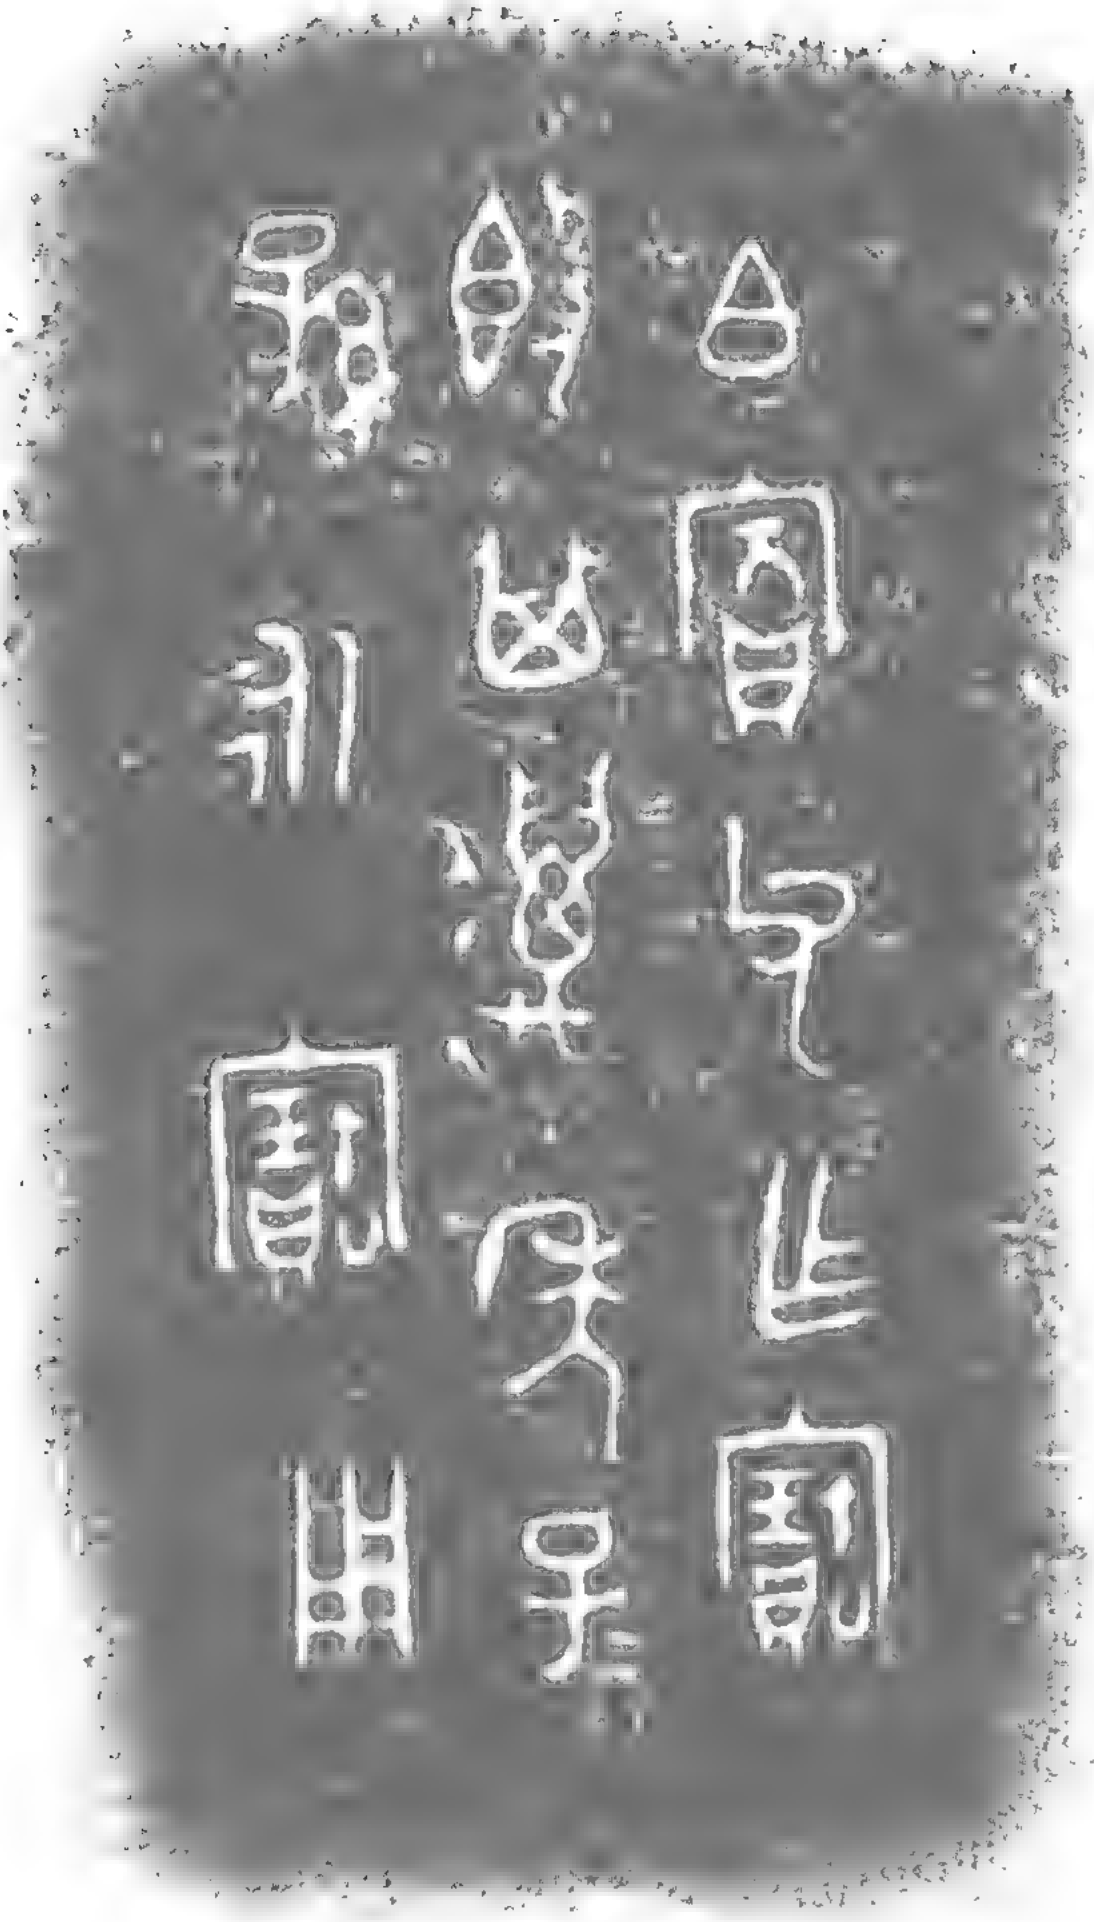 白賓父乍寶
𣪘其萬年子=
孫=永寶用